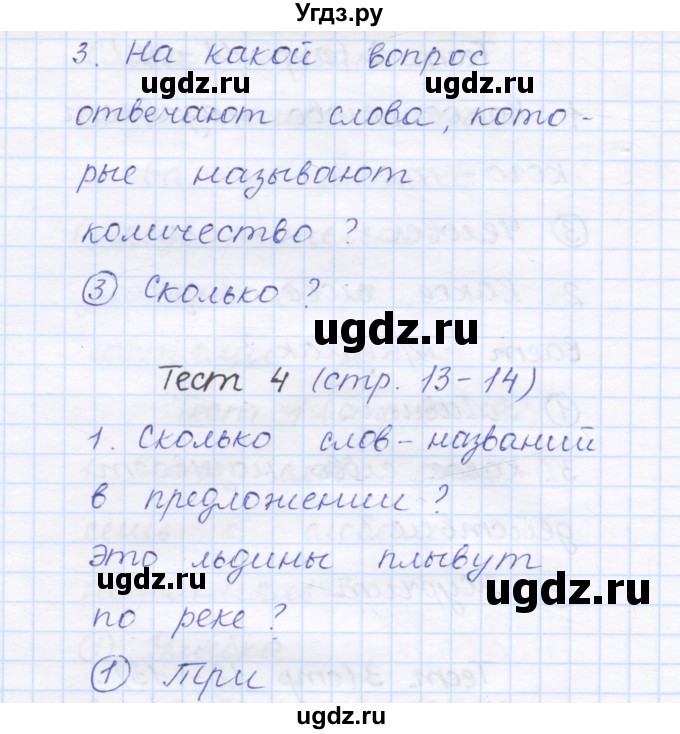 Угдз.ру
3. На какой вопрос
ugdz.ru ugdz.ru
отвечают слова, кото-
рые называют
количество?
③ Сколько?
ugdz.ru
Тест 4 (стр. 13-14)
1. Сколько слов-названий
в предложении?
Это льдины плывут
ugdz.ru ugdz.ru
по реке?
① Три
ugdz.ru